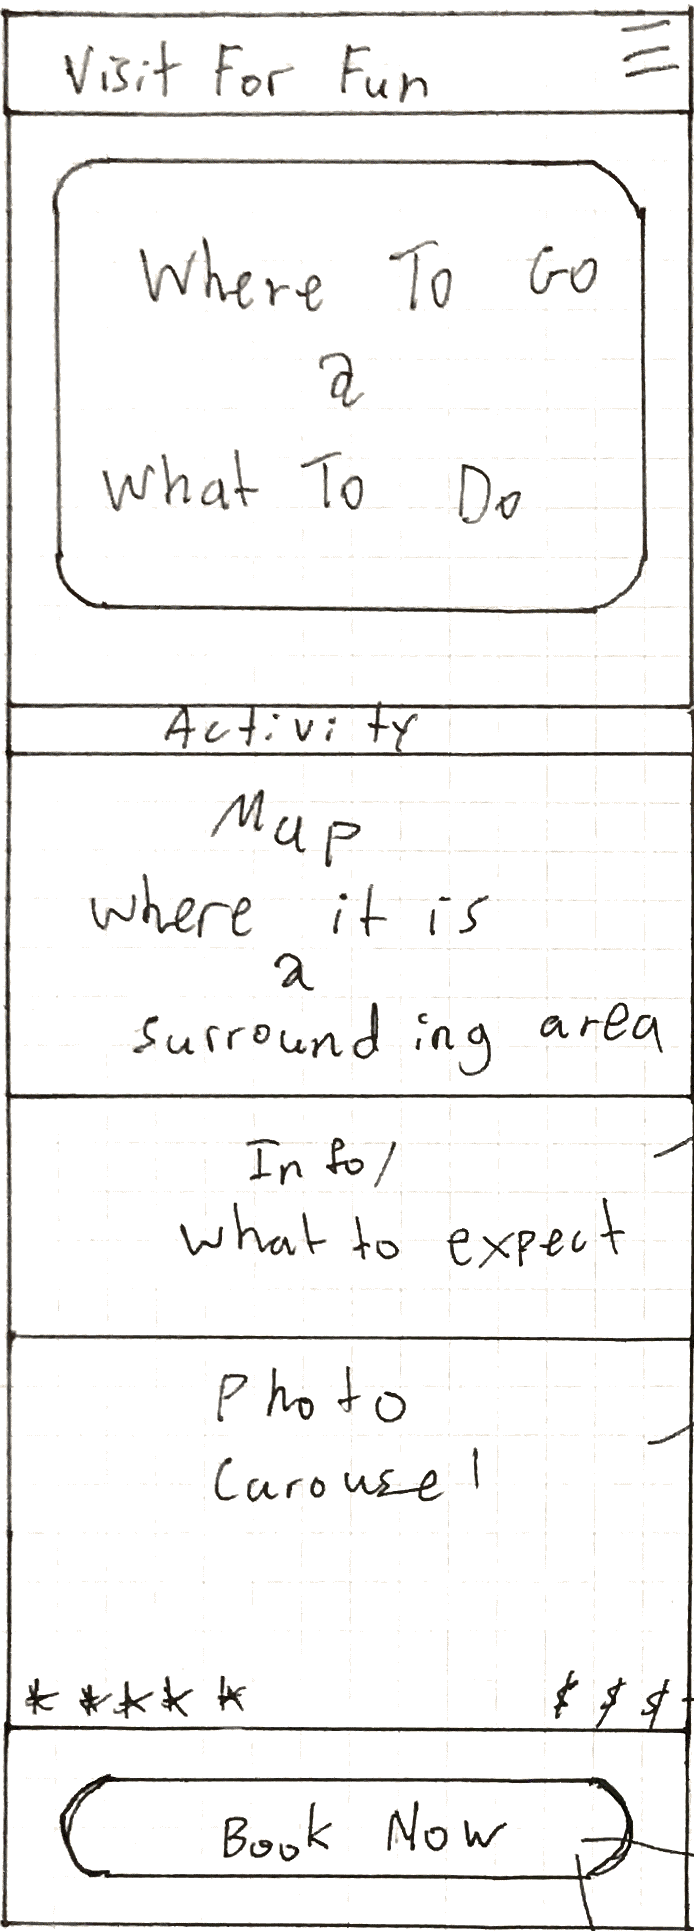 Visit For Fun
Where To Go
&
What To Do
Activity
Map
where it is
&
surrounding area
Info/
what to expect
Photo
Carousel
* * * * * $ $ $
Book Now